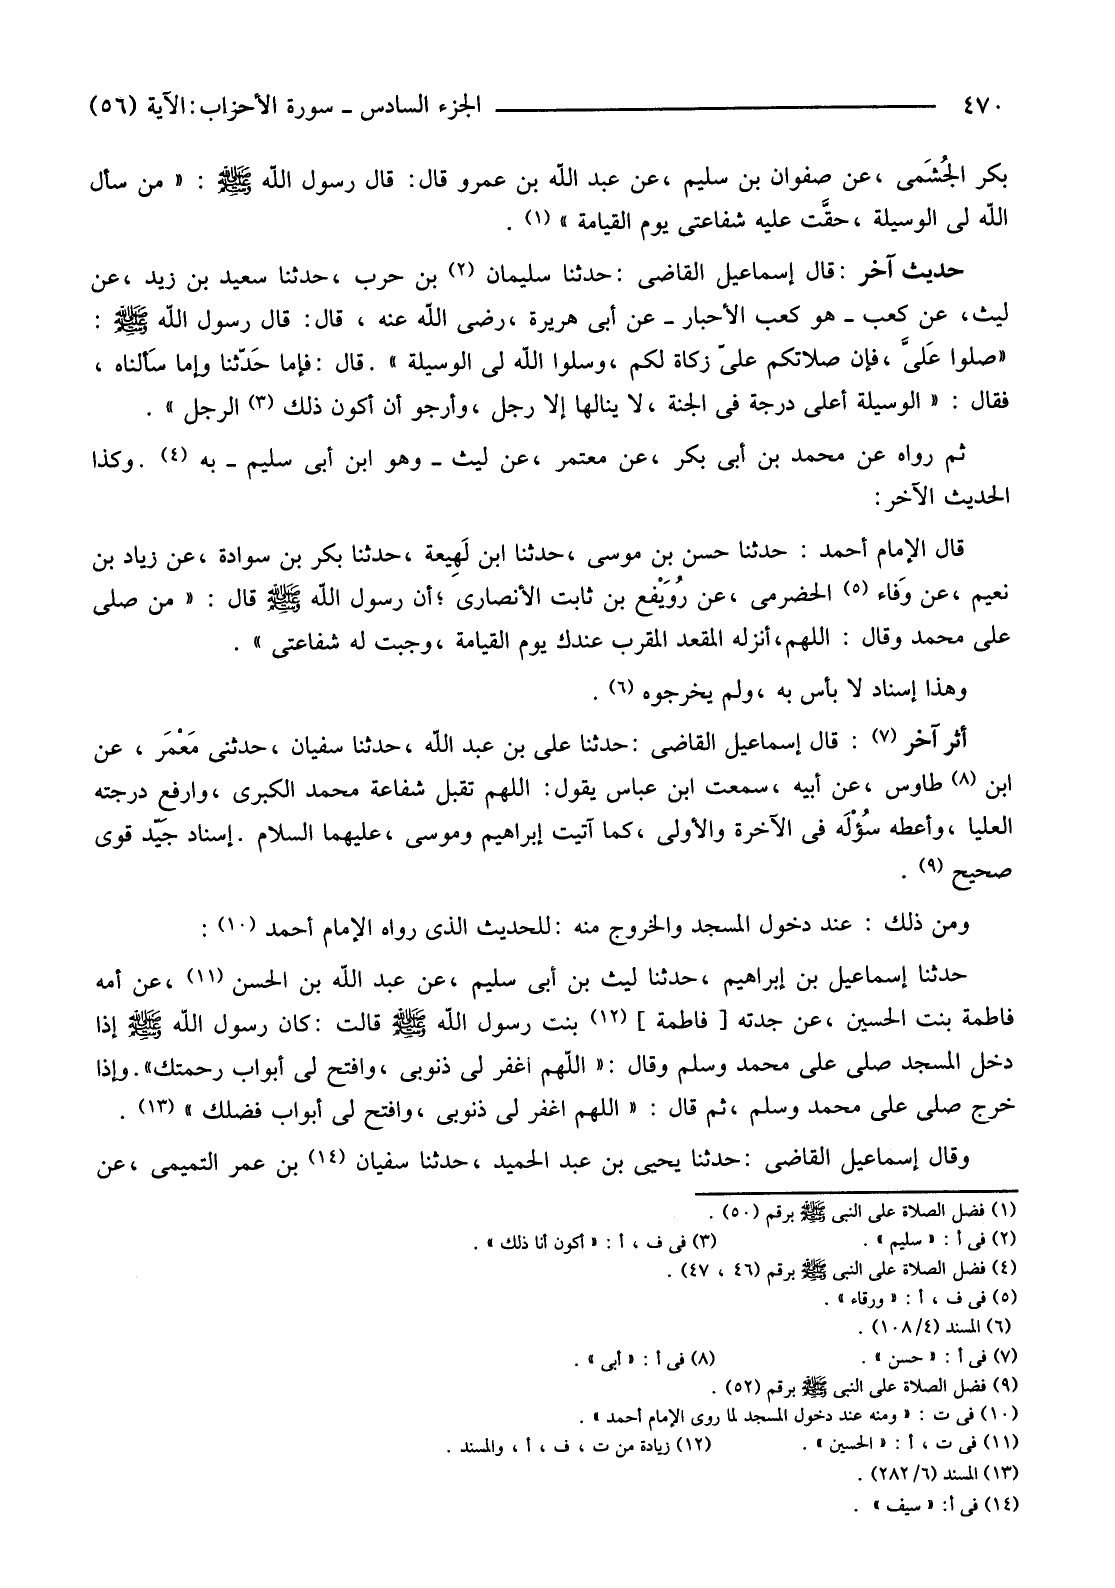 ٤٧٠ ــــــــــــــــــــ الجزء السادس ـ سورة الأحزاب: الآية (٥٦)
بكر الجُشَمى ،عن صفوان بن سليم ،عن عبد الله بن عمرو قال: قال رسول الله ﷺ : « من سأل
الله لى الوسيلة ،حقَّت عليه شفاعتى يوم القيامة » (١) .
حديث آخر :قال إسماعيل القاضى :حدثنا سليمان (٢) بن حرب ،حدثنا سعيد بن زيد ،عن
ليث، عن كعب ـ هو كعب الأحبار ـ عن أبى هريرة ،رضى الله عنه ، قال: قال رسول الله ﷺ :
«صلوا عَلىَّ ،فإن صلاتكم علىّ زكاة لكم ،وسلوا الله لى الوسيلة » .قال :فإما حَدّثنا وإما سألناه ،
فقال : « الوسيلة أعلى درجة فى الجنة ،لا ينالها إلا رجل ،وأرجو أن أكون ذلك (٣) الرجل » .
ثم رواه عن محمد بن أبى بكر ،عن معتمر ،عن ليث ـ وهو ابن أبى سليم ـ به (٤) .وكذا
الحديث الآخر:
قال الإمام أحمد : حدثنا حسن بن موسى ،حدثنا ابن لَهِيعة ،حدثنا بكر بن سوادة ،عن زياد بن
نعيم ،عن وَفاء (٥) الحضرمى ،عن رُوَيْفع بن ثابت الأنصارى ؛أن رسول الله ﷺ قال : « من صلى
على محمد وقال : اللهم،أنزله المقعد المقرب عندك يوم القيامة ،وجبت له شفاعتى » .
وهذا إسناد لا بأس به ،ولم يخرجوه (٦) .
أثر آخر (٧) : قال إسماعيل القاضى :حدثنا على بن عبد الله ،حدثنا سفيان ،حدثنى مَعْمَر ، عن
ابن (٨) طاوس ،عن أبيه ،سمعت ابن عباس يقول: اللهم تقبل شفاعة محمد الكبرى ،وارفع درجته
العليا ،وأعطه سُؤْلَه فى الآخرة والأولى ،كما آتيت إبراهيم وموسى ،عليهما السلام .إسناد جَيّد قوى
صحيح (٩) .
ومن ذلك : عند دخول المسجد والخروج منه :للحديث الذى رواه الإمام أحمد (١٠) :
حدثنا إسماعيل بن إبراهيم ،حدثنا ليث بن أبى سليم ،عن عبد الله بن الحسن (١١) ،عن أمه
فاطمة بنت الحسين ،عن جدته [ فاطمة ] (١٢) بنت رسول الله ﷺ قالت :كان رسول الله ﷺ إذا
دخل المسجد صلى على محمد وسلم وقال :« اللّهم اغفر لى ذنوبى ،وافتح لى أبواب رحمتك».وإذا
خرج صلى على محمد وسلم ،ثم قال : « اللهم اغفر لى ذنوبى ،وافتح لى أبواب فضلك » (١٣) .
وقال إسماعيل القاضى :حدثنا يحيى بن عبد الحميد ،حدثنا سفيان (١٤) بن عمر التميمى ،عن
(١) فضل الصلاة على النبى ﷺ برقم (٥٠) .
(٢) فى أ : « سليم » . (٣) فى ف ، أ : « أكون أنا ذلك » .
(٤) فضل الصلاة على النبى ﷺ برقم (٤٦ ، ٤٧) .
(٥) فى ف ، أ : « ورقاء » .
(٦) المسند (١٠٨/٤) .
(٧) فى أ : « حسن » . (٨) فى أ : « أبى » .
(٩) فضل الصلاة على النبى ﷺ برقم (٥٢) .
(١٠) فى ت : « ومنه عند دخول المسجد لما روى الإمام أحمد » .
(١١) فى ت ، أ : « الحسين » . (١٢) زيادة من ت ، ف ، أ ، والمسند .
(١٣) المسند (٢٨٢/٦) .
(١٤) فى أ: « سيف » .